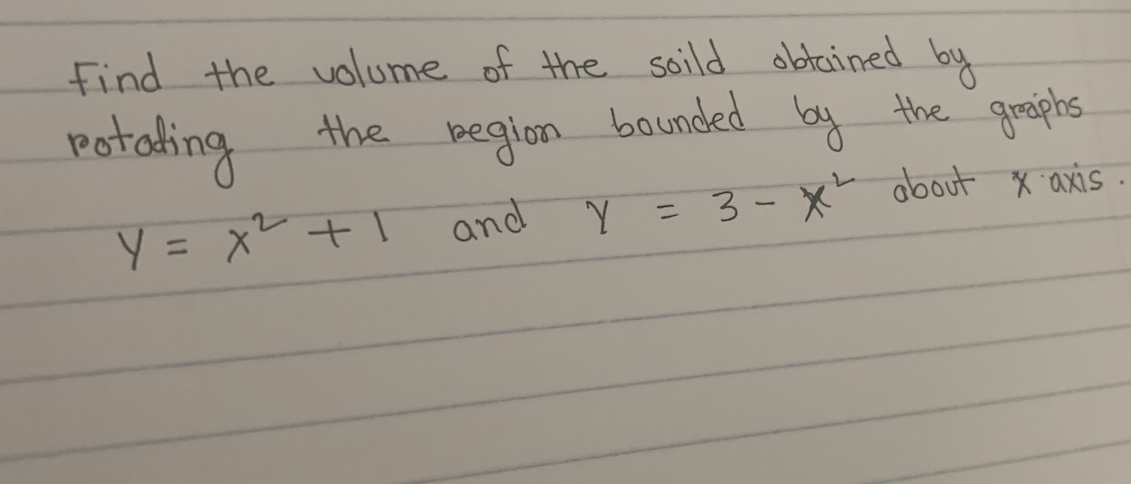 Find the volume of the soild obtained by
rotating the region bounded by the graphs
y = x² + 1 and y = 3 - x² about x axis.